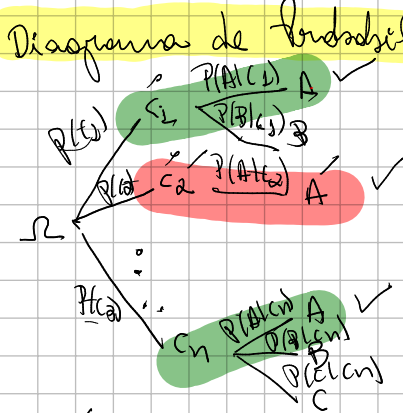 Diagrama de Probabil
P(A|C1) A
C1
P(B|C1) B
P(C1)
P(C2) C2 P(A|C2) A
Ω
P(C3)
P(A|Cn) A
Cn P(B|Cn)
B
P(C|Cn)
C